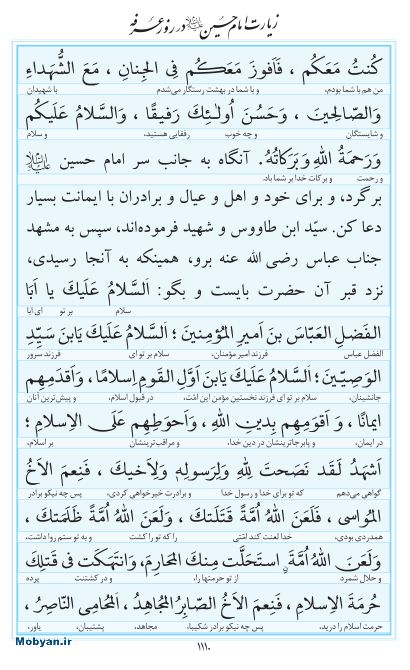 زیارت امام حسین علیه‌السلام در روز عرفه
كُنتُ مَعَكُم ، فَاَفوزَ مَعَكُم فِى الجِنانِ ، مَعَ الشُّهَداءِ
من هم با شما بودم، و با شما در بهشت رستگار می‌شدم با شهیدان
وَالصّالِحينَ ، وَحَسُنَ اُولـٰئِكَ رَفيقًا ، وَالسَّلامُ عَلَيكُم
و شایستگان و چه خوب رفقایی هستید، و سلام
وَرَحمَةُ اللهِ وَبَرَكاتُهُ. آنگاه به جانب سر امام حسین علیه‌السلام
و رحمت و برکات خدا بر شما باد.
برگرد، و برای خود و اهل و عیال و برادران با ایمانت بسیار
دعا کن. سیّد ابن طاووس و شهید فرموده‌اند، سپس به مشهد
جناب عباس رضی الله عنه برو، همینکه به آنجا رسیدی،
نزد قبر آن حضرت بایست و بگو: اَلسَّلامُ عَلَيكَ يا اَبَا
سلام بر تو ای ابا
الفَضلِ العَبّاسَ بنَ اَميرِ المُؤمِنينَ ؛ اَلسَّلامُ عَلَيكَ يَابنَ سَيِّدِ
الفضل عباس فرزند امیر مؤمنان، سلام بر تو ای فرزند سرور
الوَصِيّينَ ؛ اَلسَّلامُ عَلَيكَ يَابنَ اَوَّلِ القَومِ اِسلامًا ، وَاَقدَمِهِم
جانشینان، سلام بر تو ای فرزند نخستین مؤمن این امّت، در قبول اسلام، و پیش‌ترین آنان
ايمانًا ، وَ اَقوَمِهِم بِدينِ اللهِ ، وَاَحوَطِهِم عَلَى الاِسلامِ ؛
در ایمان، و پابرجاترینشان در دین خدا، و مراقب‌ترینشان بر اسلام،
اَشهَدُ لَقَد نَصَحتَ لِلّٰهِ وَلِرَسولِهِ وَلِاَخيكَ ، فَنِعمَ الاَخُ
گواهی می‌دهم که تو برای خدا و رسول خدا و برادرت خیرخواهی کردی، پس چه نیکو برادر
المُواسى ، فَلَعَنَ اللهُ اُمَّةً قَتَلَتكَ ، وَلَعَنَ اللهُ اُمَّةً ظَلَمَتكَ ،
همدردی بودی، خدا لعنت کند امّتی را که تو را کشت و به تو ستم روا داشت،
وَلَعَنَ اللهُ اُمَّةً استَحَلَّت مِنكَ المَحارِمَ، وَانتَهَكَت فى قَتلِكَ
و حلال شمرد از تو حرمتها را، و در کشتنت پرده
حُرمَةَ الاِسلامِ ، فَنِعمَ الاَخُ الصّابِرُ المُجاهِدُ ، اَلمُحامِى النّاصِرُ ،
حرمت اسلام را درید، پس چه نیکو برادر شکیبا، مجاهد، پشتیبان، یاور،
۱۱۱۰
Mobyan.ir